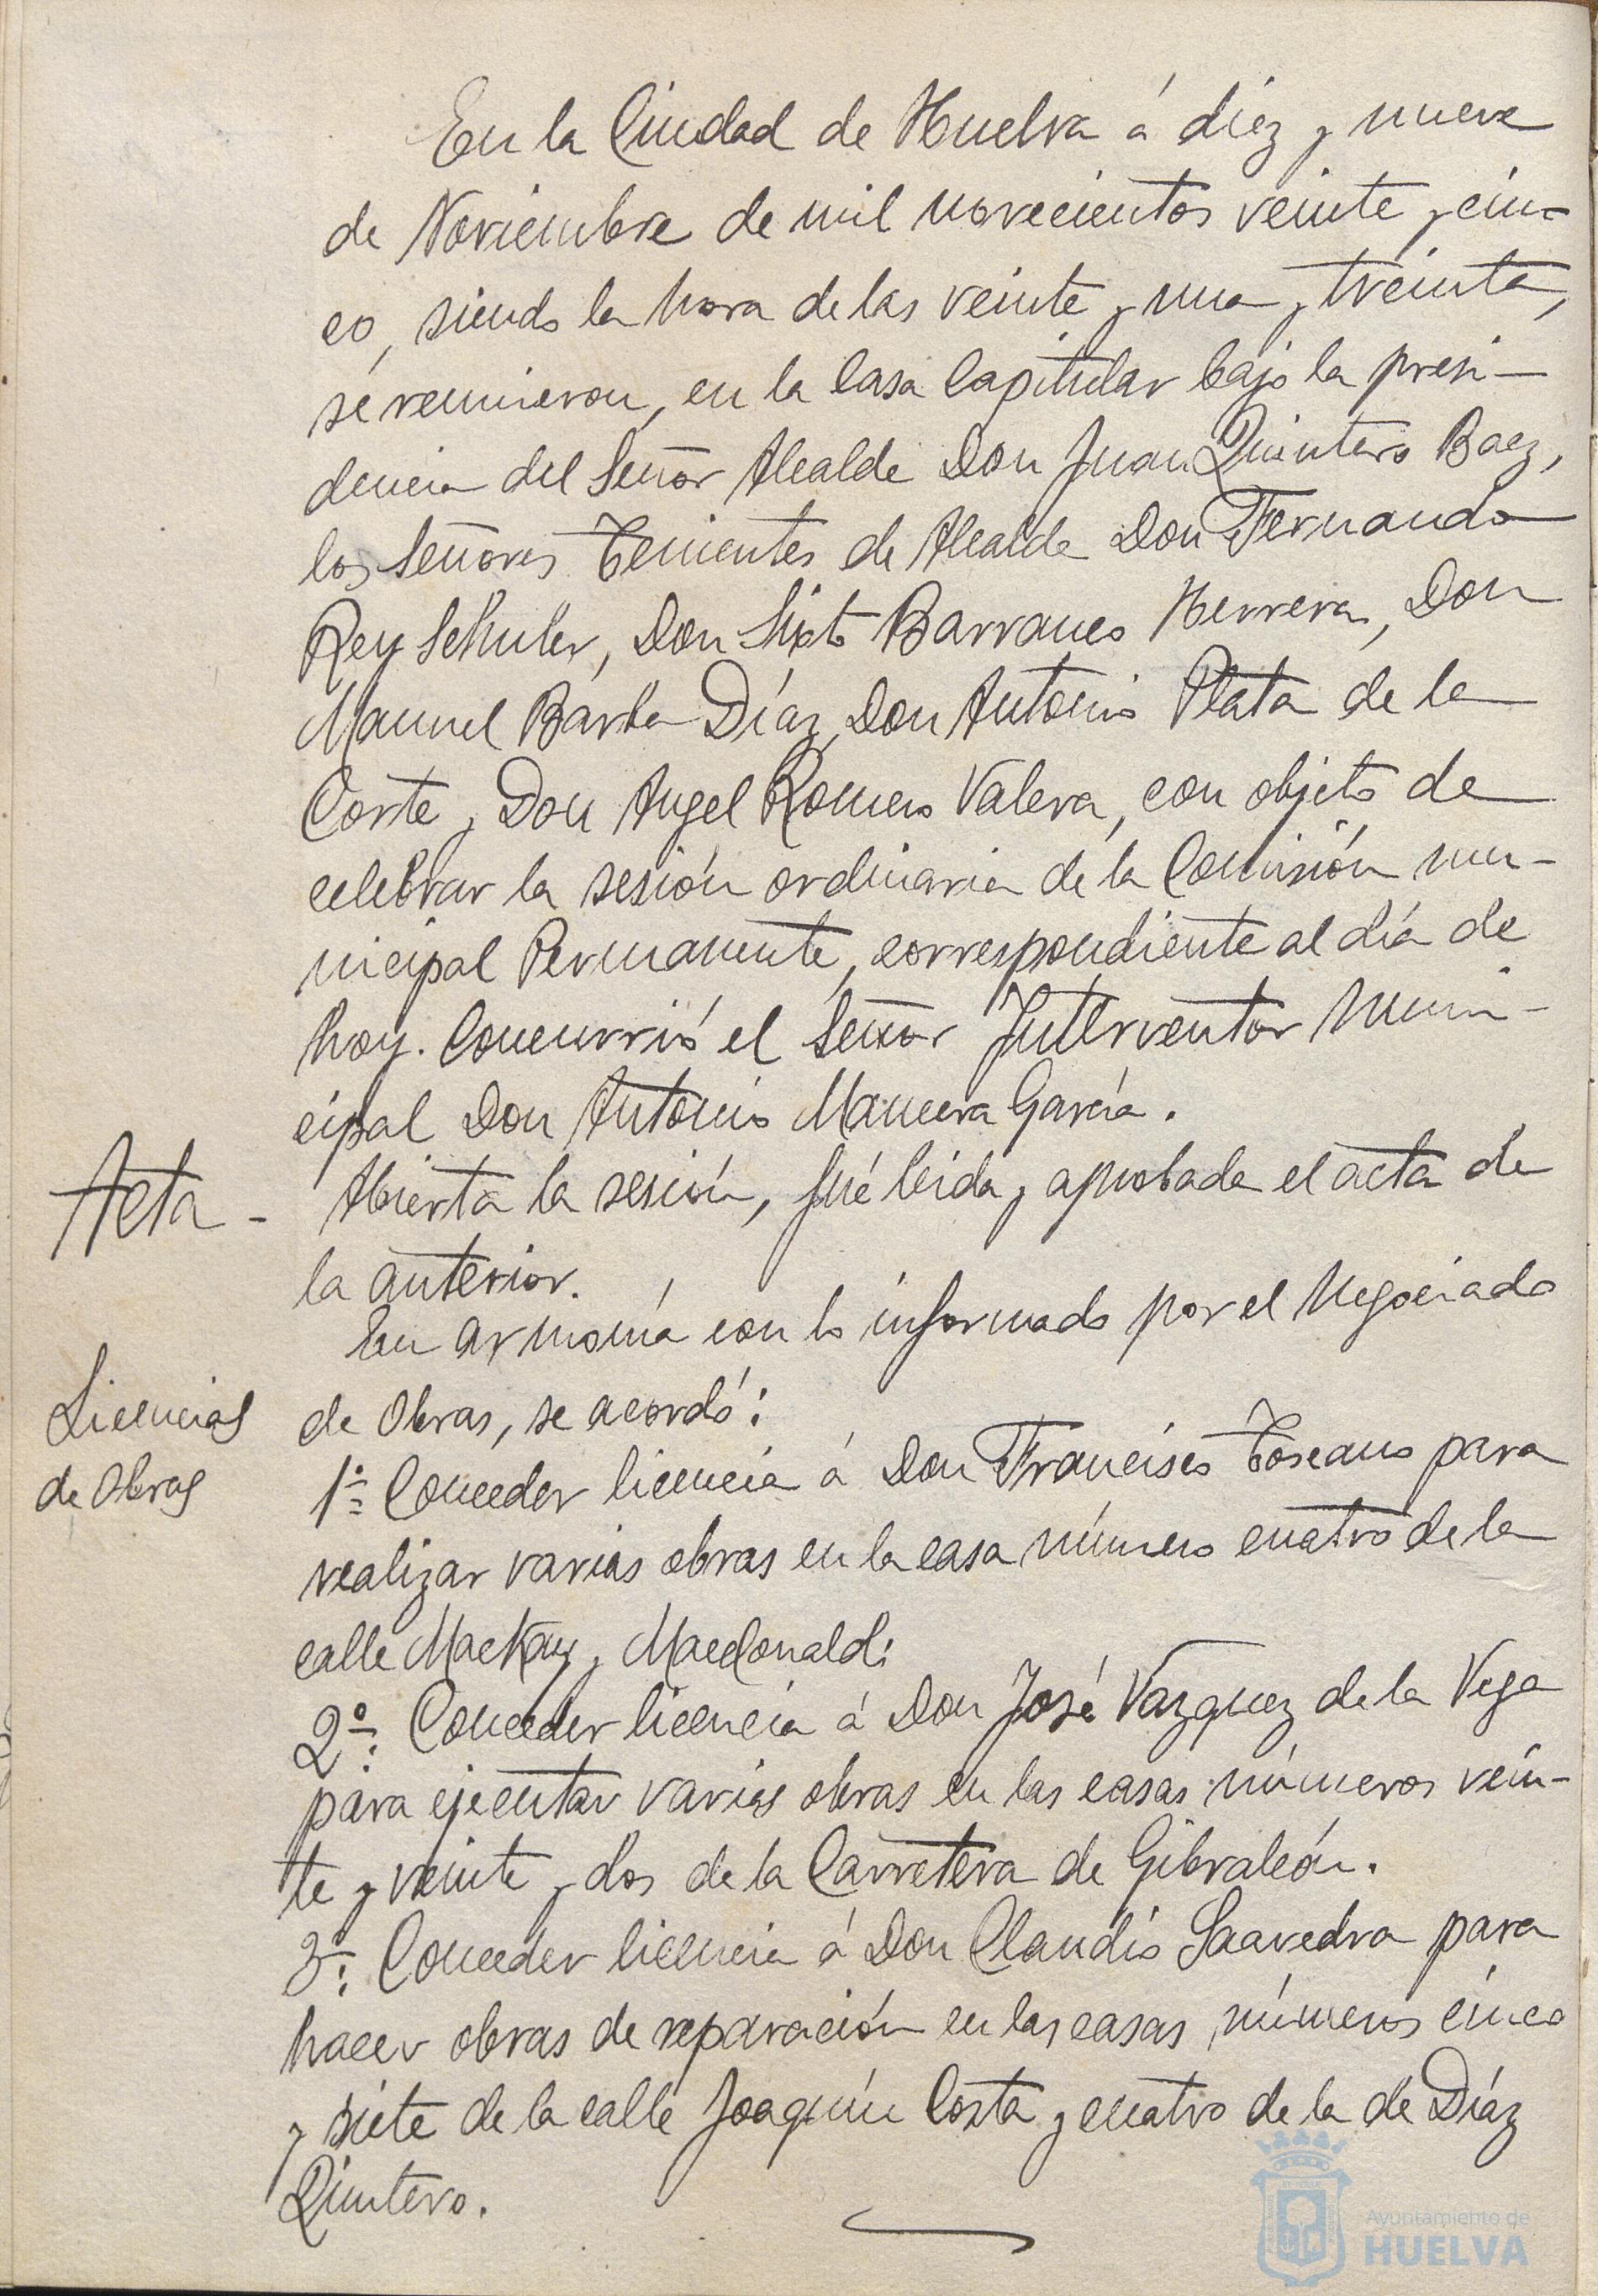 En la Ciudad de Huelva á diez y nueve
de Noviembre de mil novecientos veinte y cin-
co, siendo la hora de las veinte y una y treinta,
se reunieron, en la Casa Capitular bajo la presi-
dencia del Señor Alcalde Don Juan Quintero Baez,
los Señores Tenientes de Alcalde Don Fernando
Rey Schuler, Don Sixto Barranco Herrera, Don
Manuel Barba Díaz, Don Antonio Plata de la
Corte y Don Angel Romero Valera, con objeto de
celebrar la sesión ordinaria de la Comisión mu-
nicipal Permanente, correspondiente al día de
hoy. Concurrió el Señor Interventor muni-
cipal Don Antonio Mancera García.
Acta -
Abierta la sesión, fué leida y aprobada el acta de
la anterior.
Licencias
de Obras
En armonía con lo informado por el Negociado
de Obras, se acordó:
1º Conceder licencia á Don Francisco Toscano para
realizar varias obras en la casa número cuatro de la
calle Mackay y Macdonald:
2º: Conceder licencia á Don José Vazquez de la Vega
para ejecutar varias obras en las casas números vein-
te y veinte y dos de la Carretera de Gibraleón.
3º: Conceder licencia á Don Claudio Saavedra para
hacer obras de reparación en las casas números cinco
y siete de la calle Joaquín Costa y cuatro de la de Díaz
Quintero.
Ayuntamiento de
HUELVA